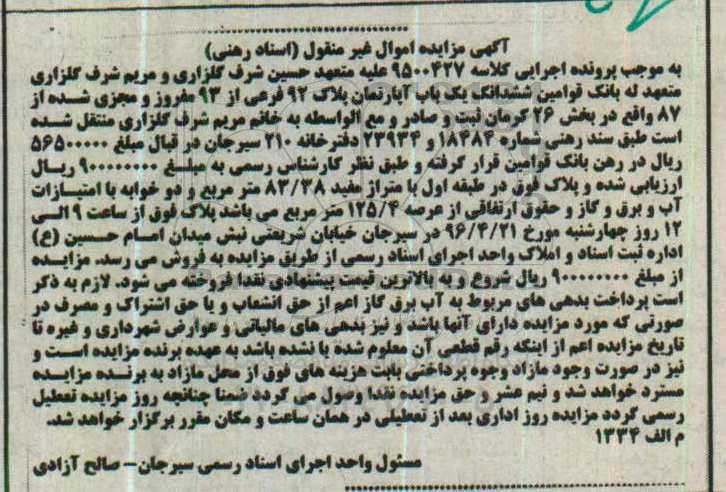 آگهی مزایده اموال غیر منقول (اسناد رهنی)
به موجب پرونده اجرایی کلاسه ۹۵۰۰۴۲۷ علیه متعهد حسین شرف گلزاری و مریم شرف گلزاری
متعهد له بانک قوامین ششدانگ یک باب آپارتمان پلاک ۹۲ فرعی از ۹۳ مفروز و مجزی شده از
۸۷ واقع در بخش ۲۶ کرمان ثبت و صادر و مع الواسطه به خانم مریم شرف گلزاری منتقل شده
است طبق سند رهنی شماره ۱۸۴۸۴ و ۲۳۹۳۴ دفترخانه ۲۱۰ سیرجان در قبال مبلغ ۵۶۵۰۰۰۰۰
ریال در رهن بانک قوامین قرار گرفته و طبق نظر کارشناس رسمی به مبلغ ۹۰۰۰۰۰۰۰۰ ریال
ارزیابی شده و پلاک فوق در طبقه اول با متراژ مفید ۸۳/۳۸ متر مربع و دو خوابه با امتیازات
آب و برق و گاز و حقوق ارتفاقی از عرصه ۱۲۵/۴ متر مربع می باشد پلاک فوق از ساعت ۹ الی
۱۲ روز چهارشنبه مورخ ۹۶/۴/۲۱ در سیرجان خیابان شریعتی نبش میدان امام حسین (ع)
اداره ثبت اسناد و املاک واحد اجرای اسناد رسمی از طریق مزایده به فروش می رسد. مزایده
از مبلغ ۹۰۰۰۰۰۰۰۰ ریال شروع و به بالاترین قیمت پیشنهادی نقدا فروخته می شود. لازم به ذکر
است پرداخت بدهی های مربوط به آب برق گاز اعم از حق انشعاب و یا حق اشتراک و مصرف در
صورتی که مورد مزایده دارای آنها باشد و نیز بدهی های مالیاتی و عوارض شهرداری و غیره تا
تاریخ مزایده اعم از اینکه رقم قطعی آن معلوم شده یا نشده باشد به عهده برنده مزایده است و
نیز در صورت وجود مازاد وجوه پرداختی بابت هزینه های فوق از محل مازاد به برنده مزایده
مسترد خواهد شد و نیم عشر و حق مزایده نقدا وصول می گردد ضمنا چنانچه روز مزایده تعطیل
رسمی گردد مزایده روز اداری بعد از تعطیلی در همان ساعت و مکان مقرر برگزار خواهد شد.
م الف ۱۳۳۴
مسئول واحد اجرای اسناد رسمی سیرجان– صالح آزادی